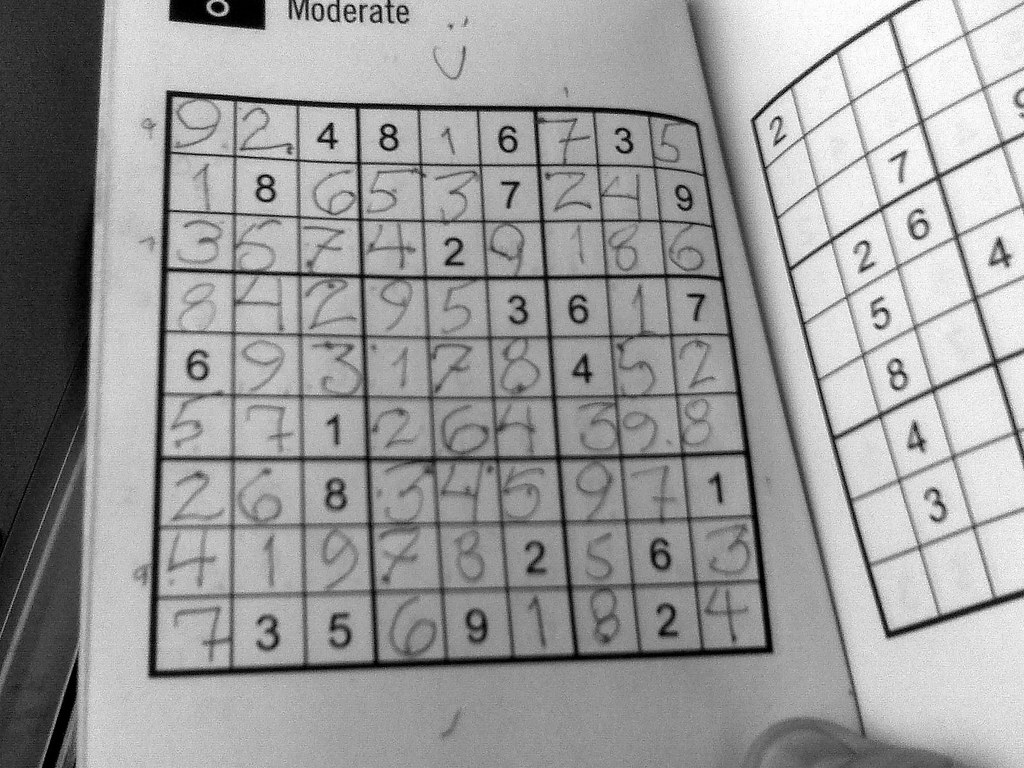 Moderate
9 2 4 8 1 6 7 3 5
1 8 6 5 3 7 2 4 9
3 5 7 4 2 9 1 8 6
8 4 2 9 5 3 6 1 7
6 9 3 1 7 8 4 5 2
5 7 1 2 6 4 3 9 8
2 6 8 3 4 5 9 7 1
4 1 9 7 8 2 5 6 3
7 3 5 6 9 1 8 2 4
2
7
2 6
5 4
8
4
3